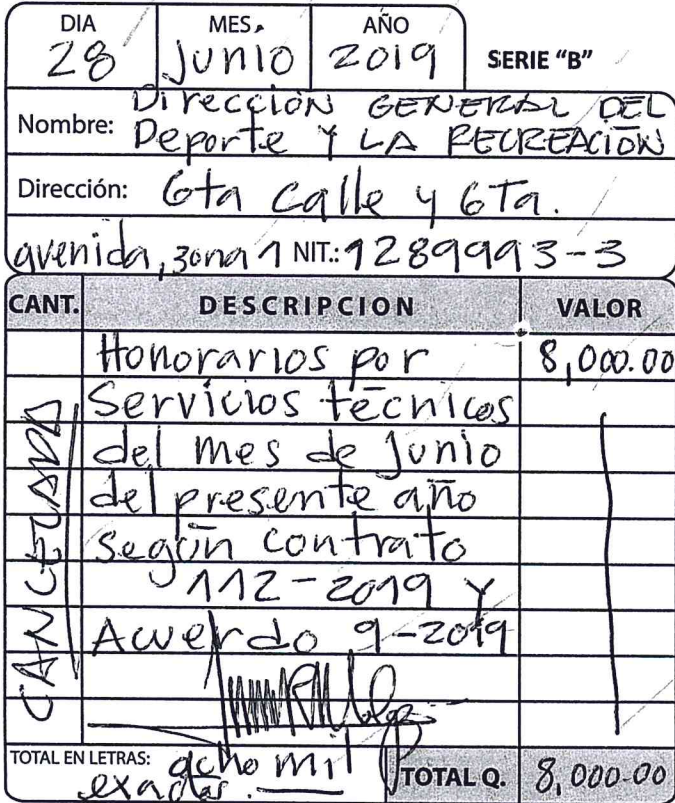 DIA MES AÑO
28 Junio 2019 SERIE "B"
Nombre: Dirección GENERAL DEL
Deporte Y LA RECREACIÓN
Dirección: 6ta calle y 6Ta.
avenida, zona 1 NIT.: 1289993-3
CANT. DESCRIPCION VALOR
Honorarios por 8,000.00
Servicios técnicos
del mes de Junio
del presente año
según contrato
112-2019 Y
Acuerdo 9-2019
CANCELADO
TOTAL EN LETRAS: ocho mil
exactos. TOTAL Q. 8,000.00